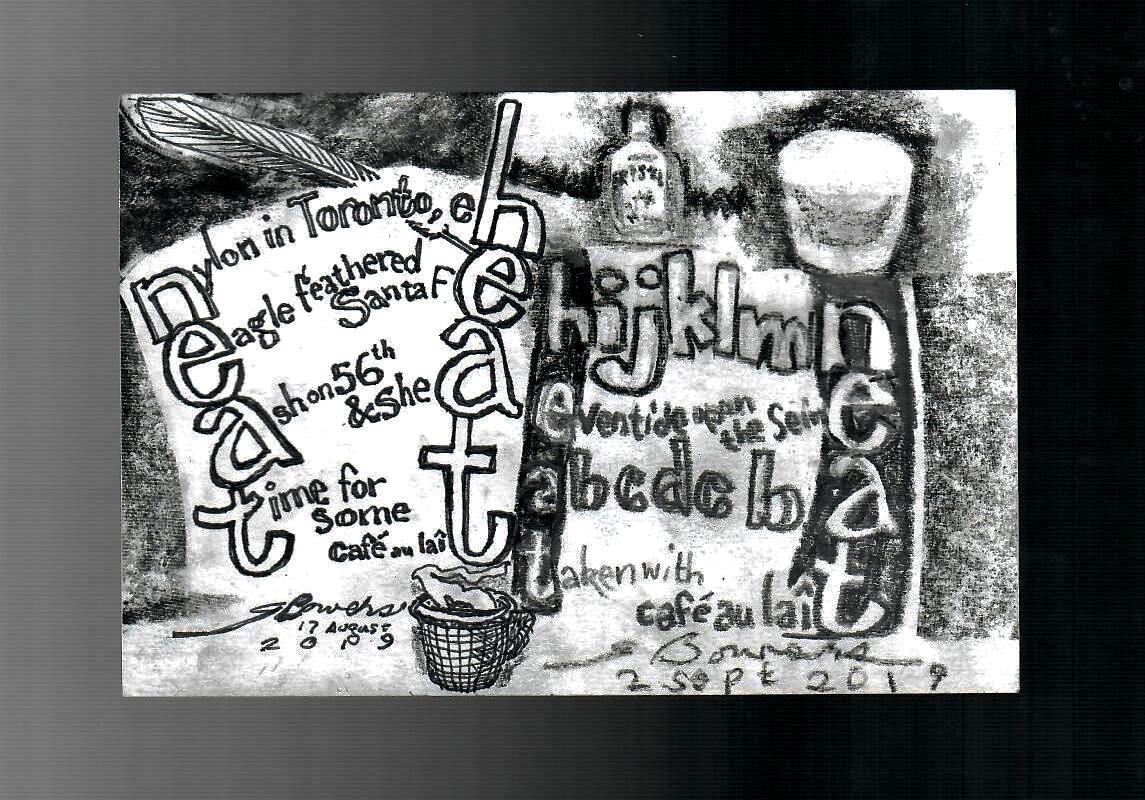 nylon in Toronto, eh
eagle feathered
Santa Fe
ash on 56th
& Shea
time for
some
café au laît
SBowers
17 August
2019
hijklmn
eventide upon
the Seine
abcde ba
taken with
café au laît
S Bowers
2 Sept 2019